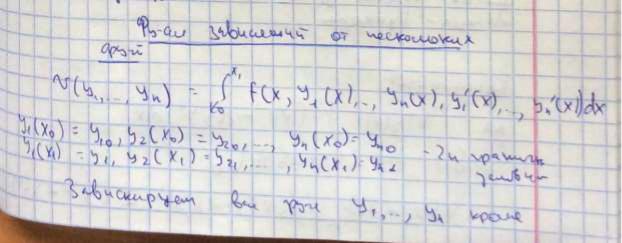 Ф-ал зависящий от нескольких
ф-ций
v(y₁,..., yₙ) = ∫ₓ₀ˣ¹ f(x, y₁(x),.., yₙ(x), y₁'(x),.., yₙ'(x))dx
y₁(x₀) = y₁₀, y₂(x₀) = y₂₀,..., yₙ(x₀) = yₙ₀ - 2n граничн
y₁(x₁) = y₁₁, y₂(x₁) = y₂₁,..., yₙ(x₁) = yₙ₁ условий
Зафиксируем все y₁,..., yₙ кроме